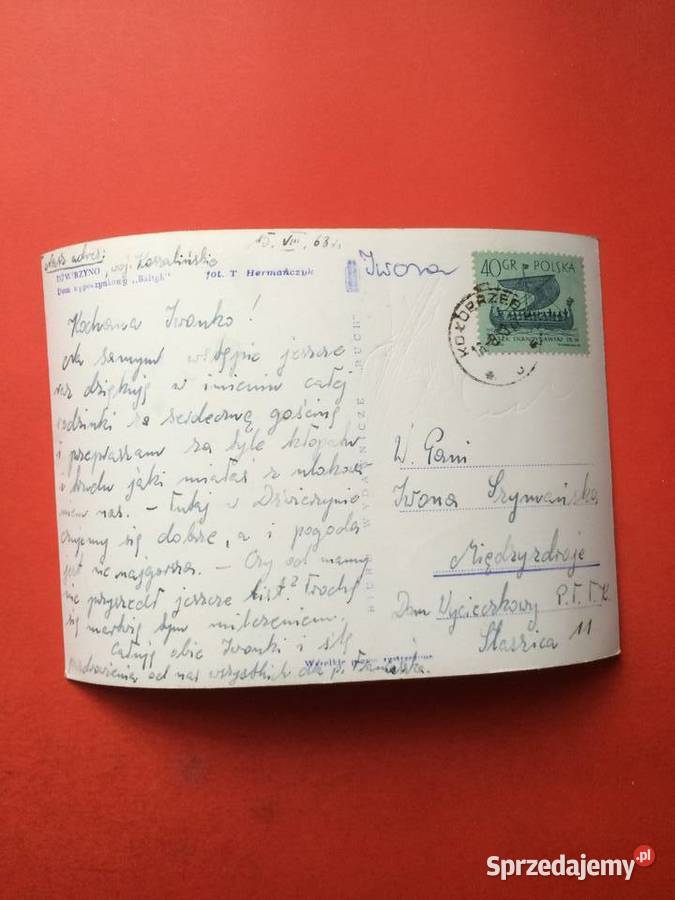 15. VIII. 68r.
Nasz adres:
DŹWIRZYNO, woj. Koszalińskie
Dom wypoczynkowy „Bałtyk" fot. T. Hermańczyk
Iwona
40 GR POLSKA
KOŁOBRZEG
Kochana Iwonko!
Na samym wstępie jeszcze
raz dziękuję w imieniu całej
rodzinki za serdeczną gościnę
i przepraszam za tyle kłopotu
i trudu jaki miałaś z ulokowa
niem nas. – Tutaj w Dźwirzynie
czujemy się dobrze, a i pogoda
jest nie najgorsza. – Czy od mamy
nie przyszedł jeszcze list? Trochę
się martwię tym milczeniem.
Całuję obie Iwonki i ślę
pozdrowienia od nas wszystkich dla p.
BIURO WYDAWNICZE „RUCH"
W. Pani
Iwona Szymańska
Międzyzdroje
Dom Wycieczkowy P.T.T.K
Staszica 11
Wszelkie prawa zastrzeżone
Sprzedajemy.pl